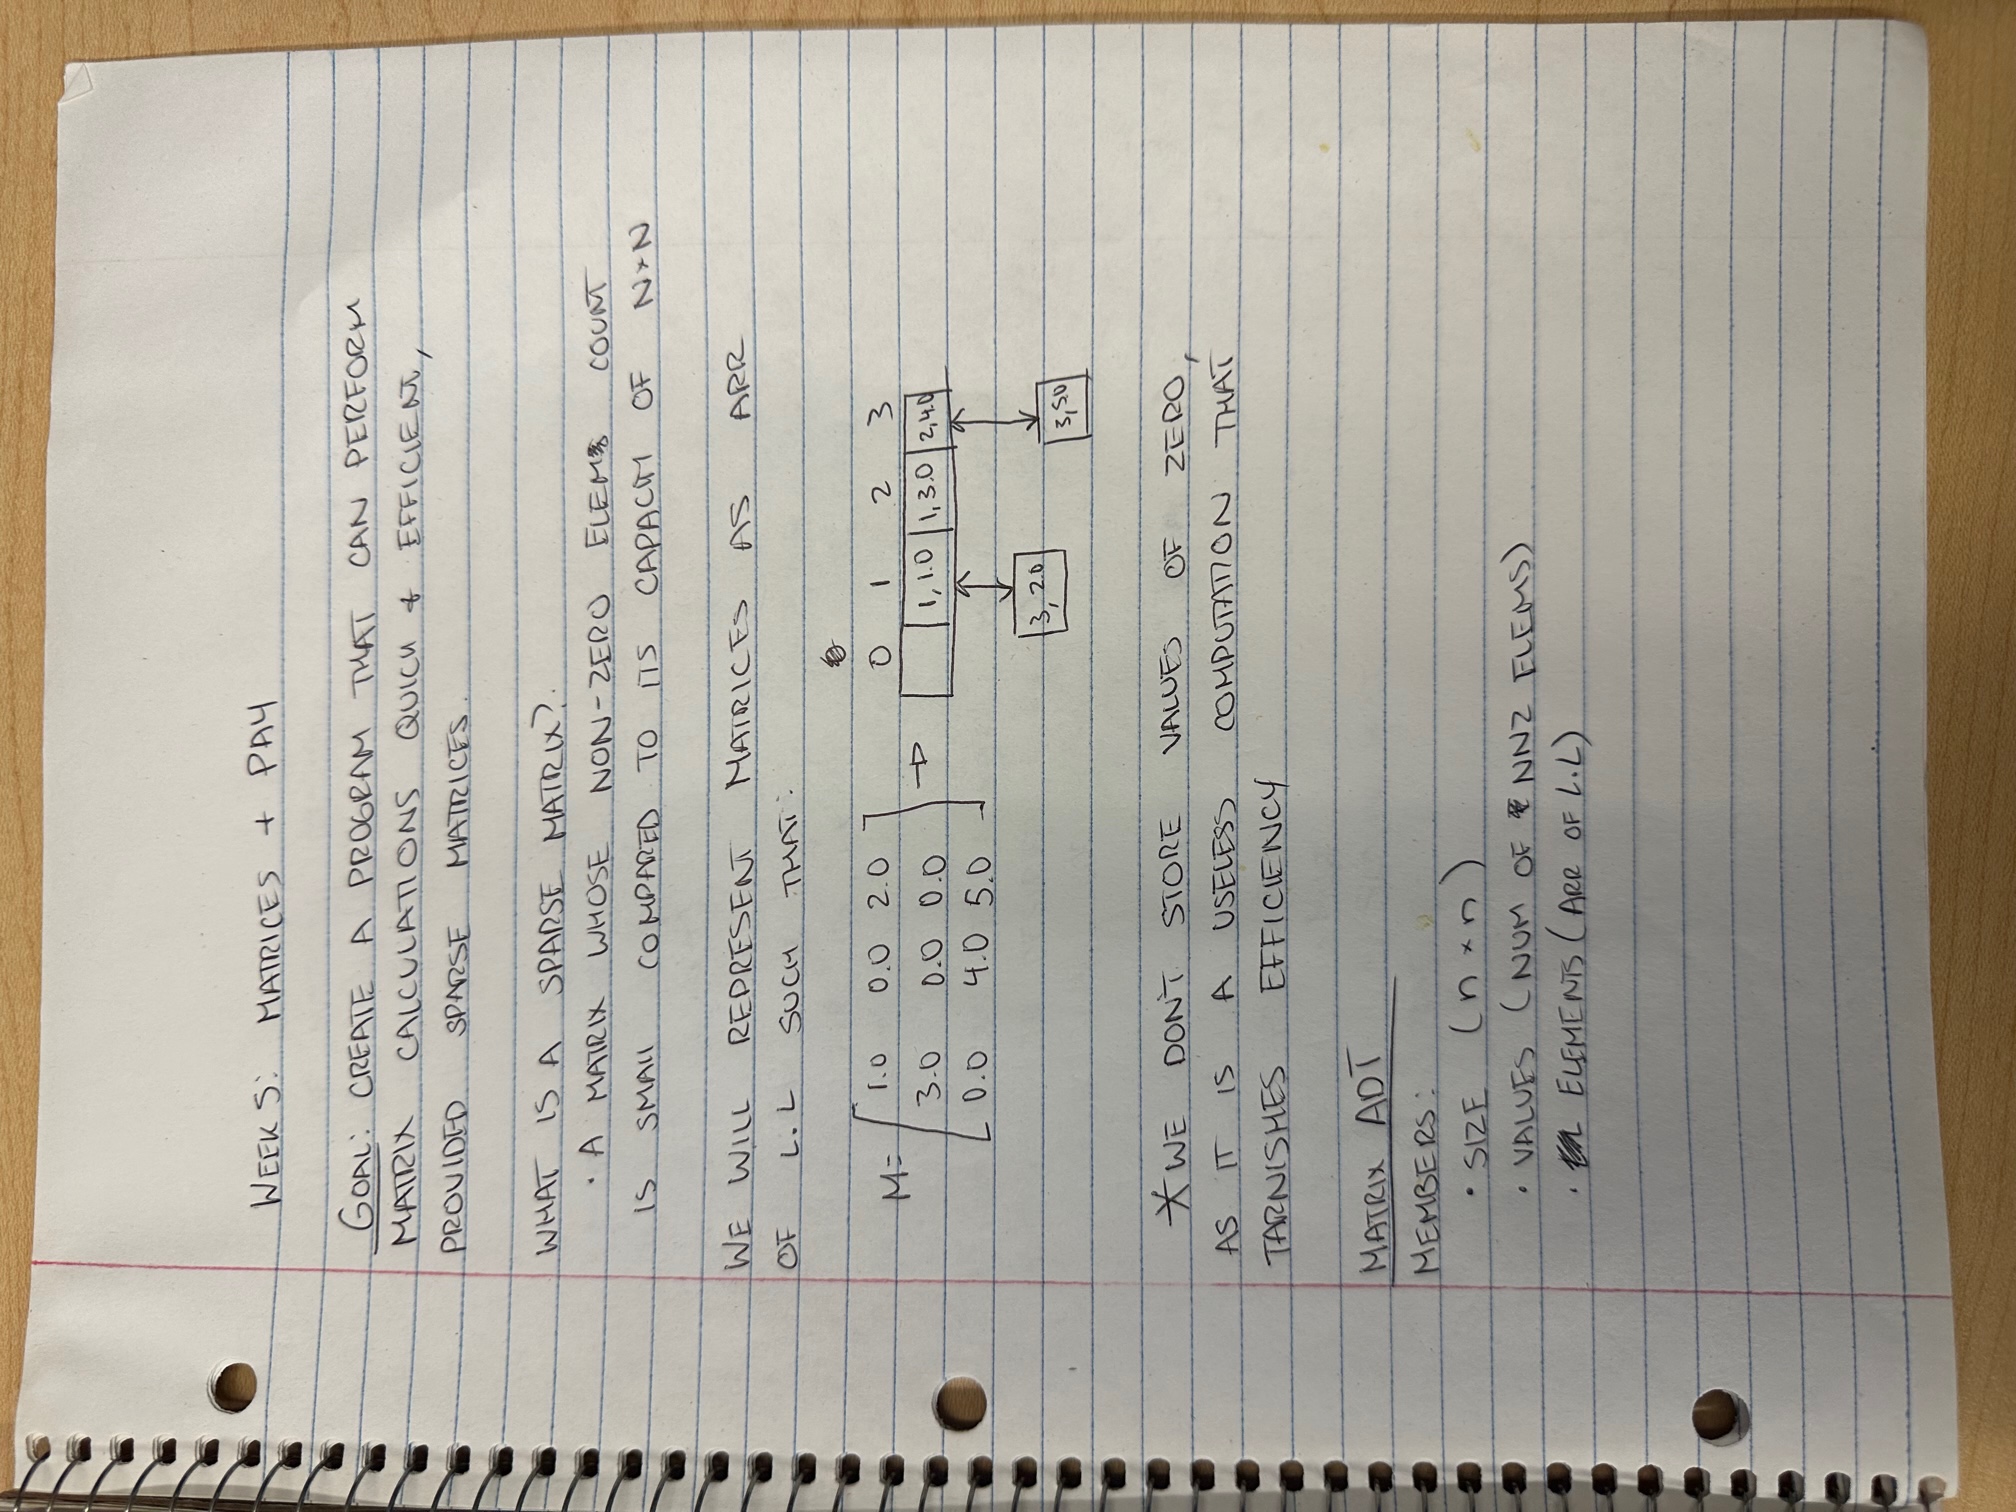 WEEK 5: MATRICES + PA4
GOAL: CREATE A PROGRAM THAT CAN PERFORM
MATRIX CALCULATIONS QUICK & EFFICIENT,
PROVIDED SPARSE MATRICES.
WHAT IS A SPARSE MATRIX?.
· A MATRIX WHOSE NON-ZERO ELEMS COUNT
IS SMALL COMPARED TO ITS CAPACITY OF N×N
WE WILL REPRESENT MATRICES AS ARR
OF L.L SUCH THAT:
0 1 2 3
M= [ 1.0 0.0 2.0 ] → 1, 1.0 1, 3.0 2, 4.0
3.0 0.0 0.0
0.0 4.0 5.0
3, 2.0 3, 5.0
*WE DON'T STORE VALUES OF ZERO,
AS IT IS A USELESS COMPUTATION THAT
TARNISHES EFFICIENCY
MATRIX ADT
MEMBERS:
· SIZE (n × n)
· VALUES (NUM OF NNZ ELEMS)
· ELEMENTS (ARR OF L.L)